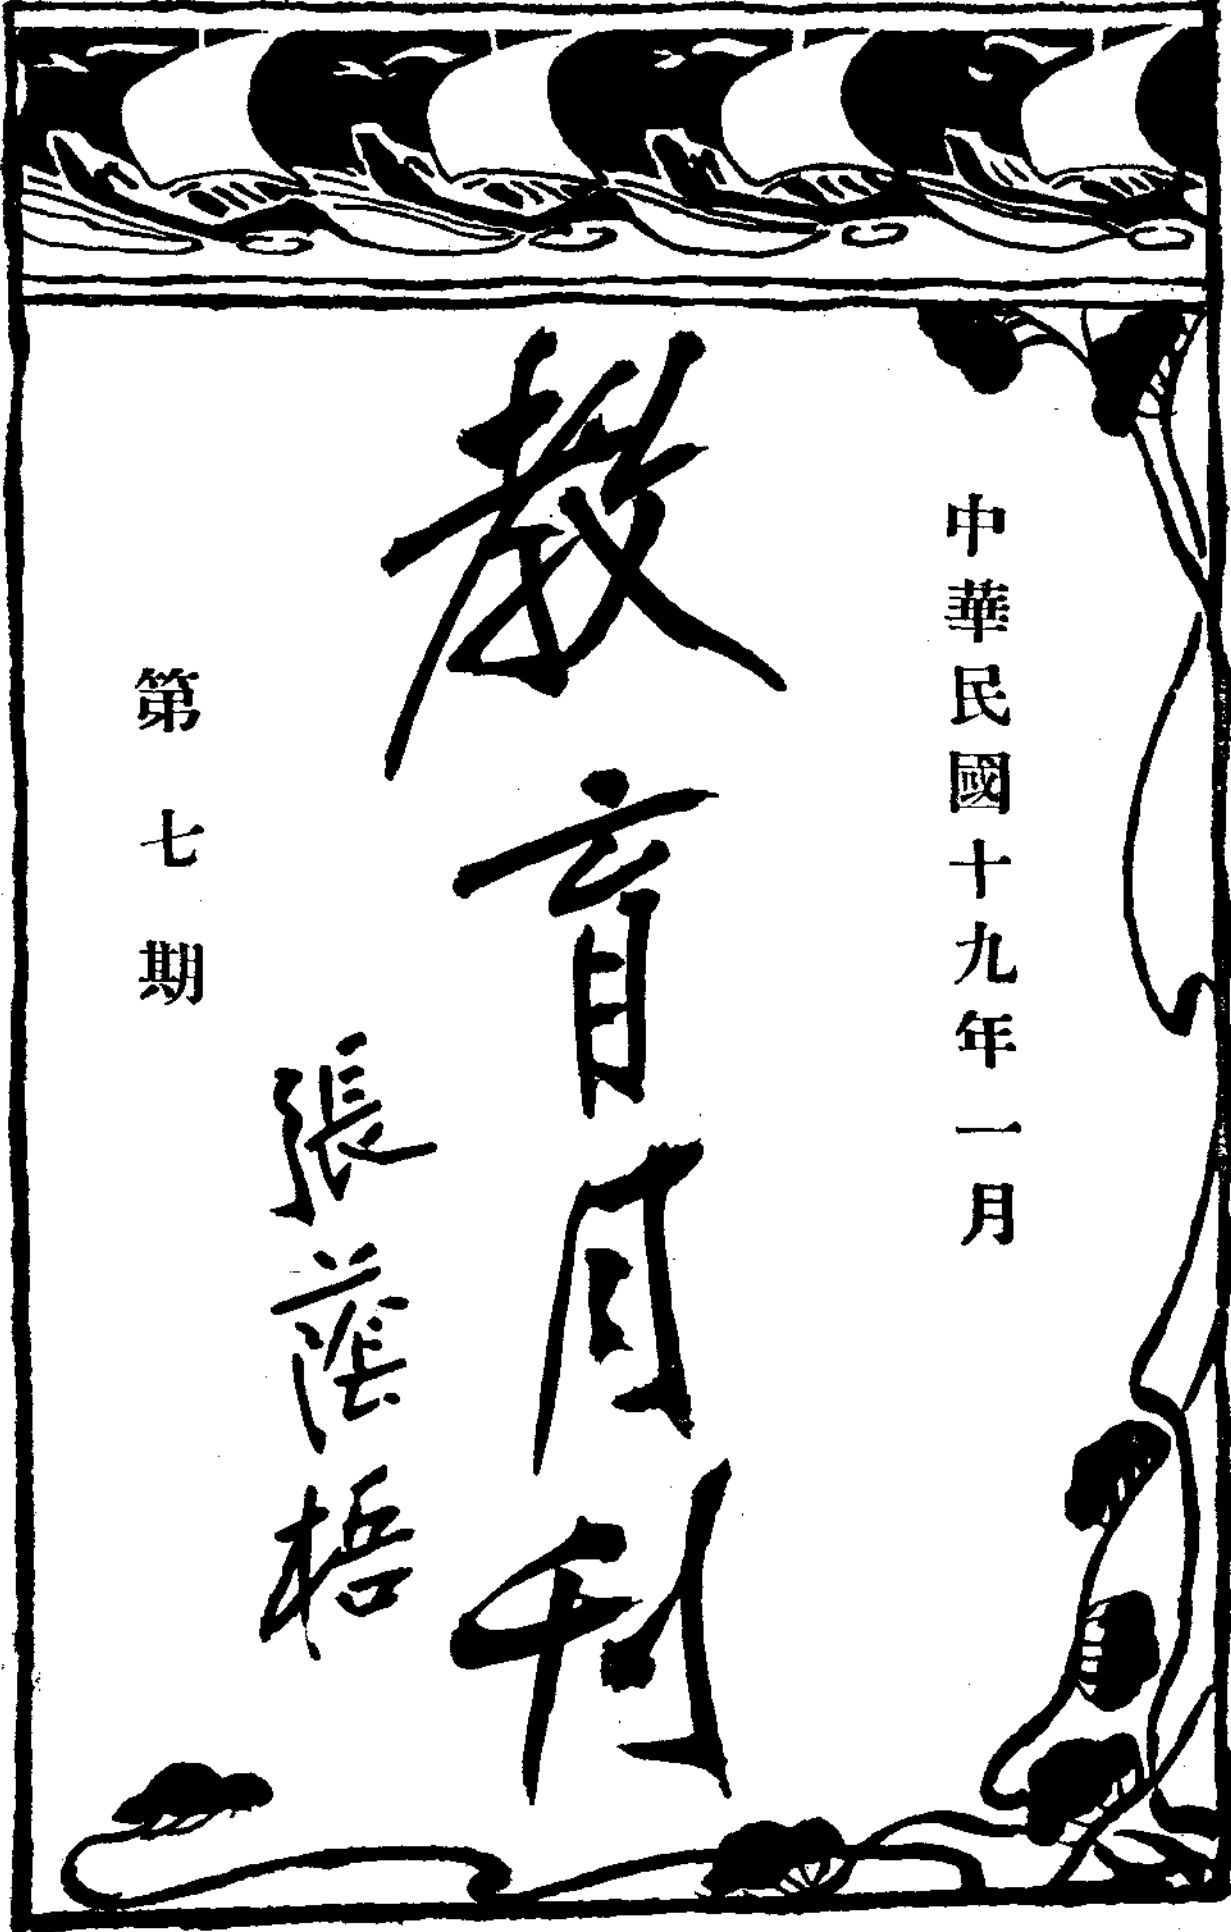 中華民國十九年一月
教育月刊
張蔭梧
第七期